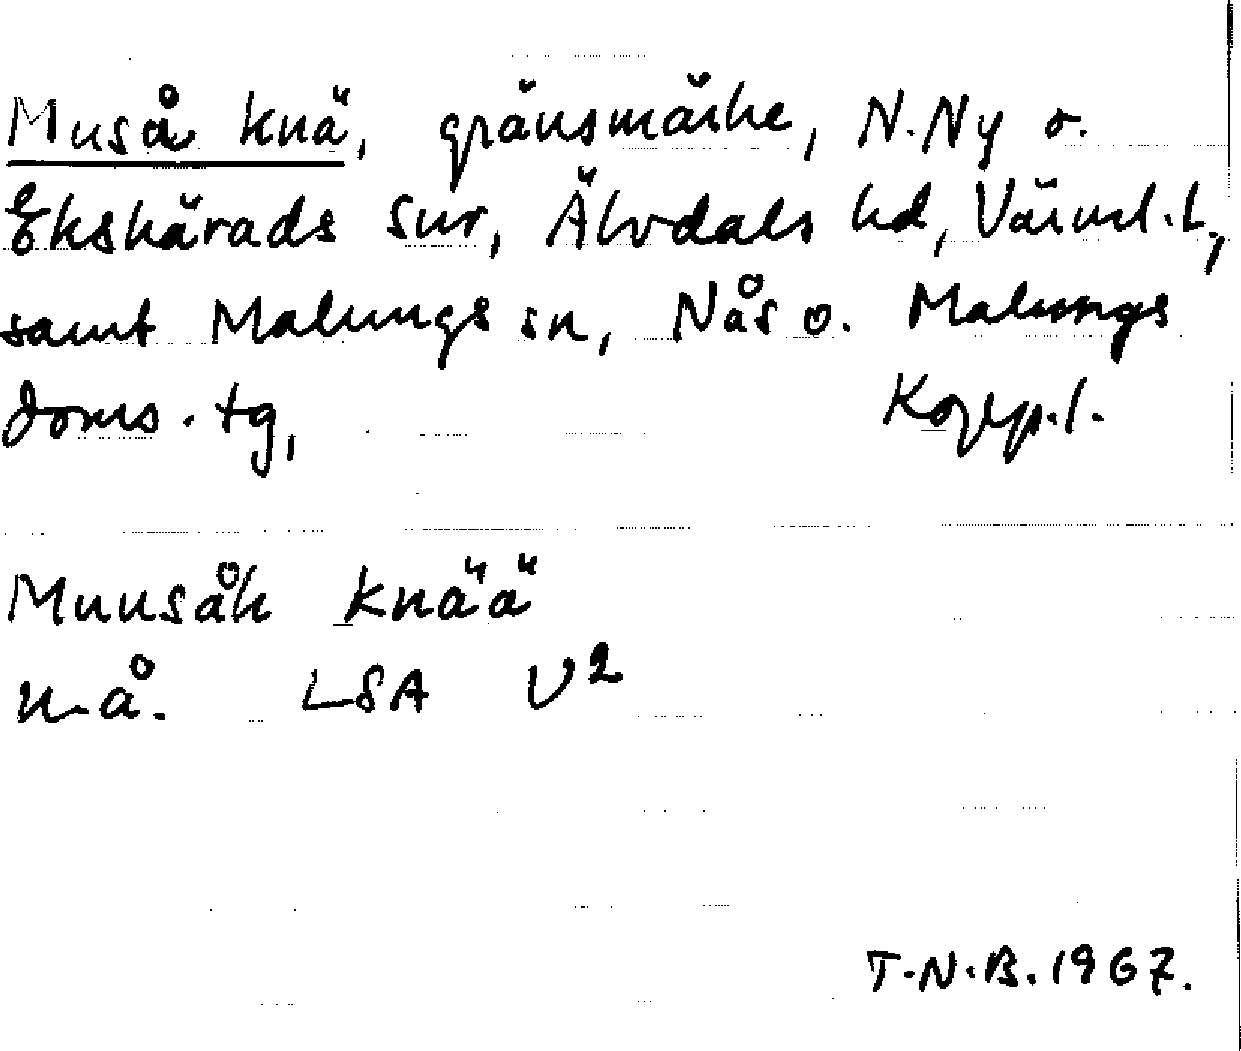 Muså knä, gränsmärke, N.Ny o.
Ekshärads snr, Älvdals hd, Värml.l.,
samt Malungs sn, Nås o. Malungs
doms.tg, Kopp.l.
Muusåk knää
n-å. LSA V2
T.N.B. 1967.